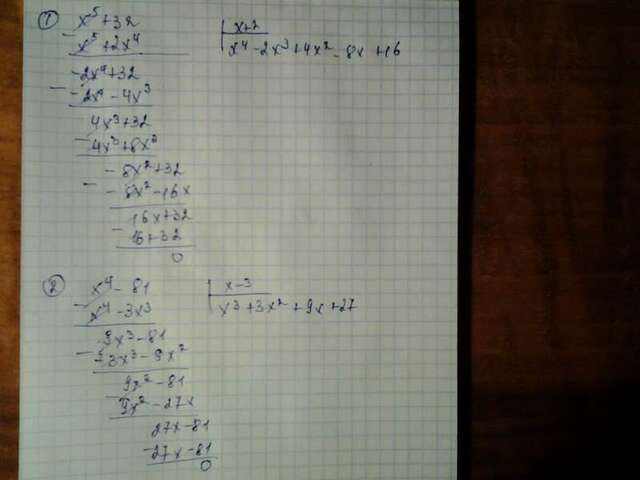 ① x⁵+32 | x+2
- x⁵+2x⁴ | x⁴-2x³+4x²-8x+16
-2x⁴+32
- -2x⁴-4x³
4x³+32
- 4x³+8x²
-8x²+32
- -8x²-16x
16x+32
- 16+32
0
② x⁴-81 | x-3
- x⁴-3x³ | x³+3x²+9x+27
3x³-81
- 3x³-9x²
9x²-81
- 9x²-27x
27x-81
- 27x-81
0